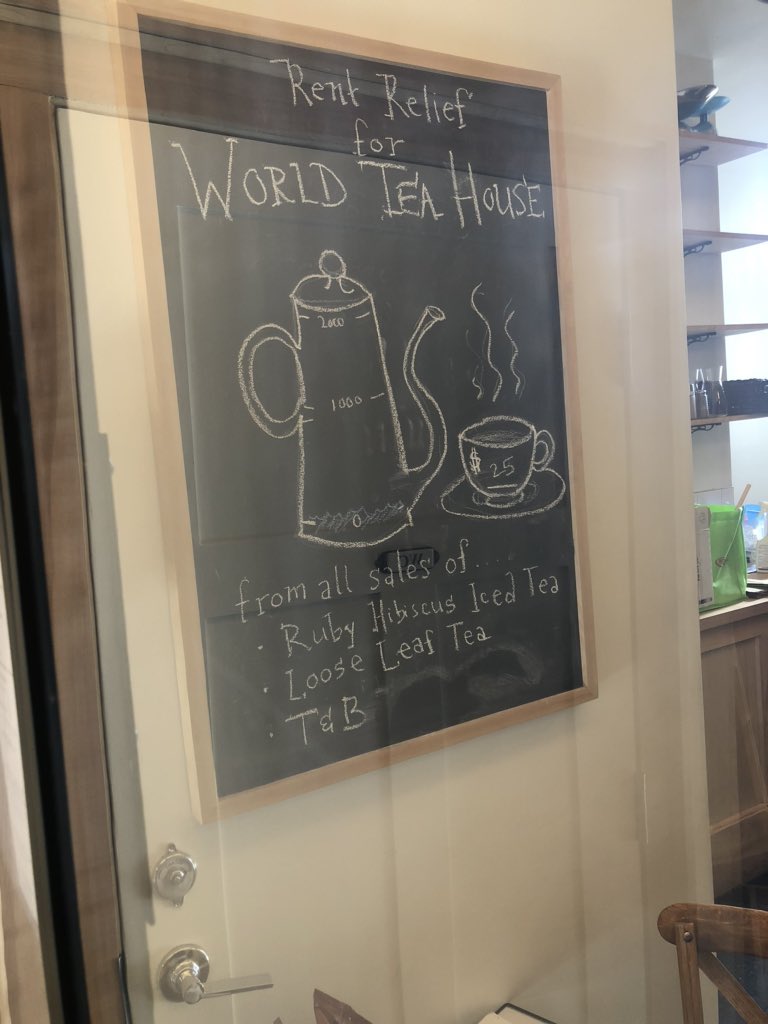 Rent Relief
for
WORLD TEA HOUSE
2000
1000
0
$25
from all sales of....
• Ruby Hibiscus Iced Tea
• Loose Leaf Tea
• T&B